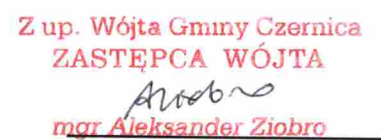 Z up. Wójta Gminy Czernica
ZASTĘPCA WÓJTA
mgr Aleksander Ziobro